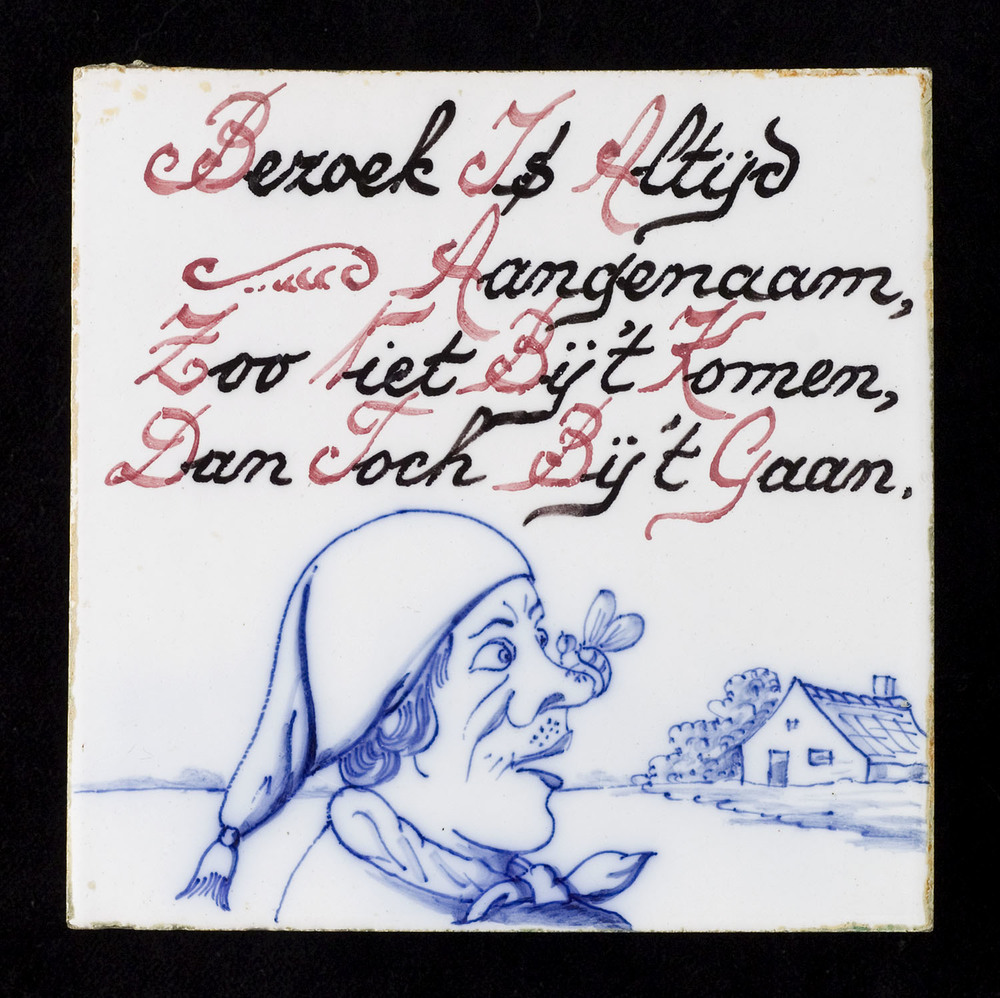 Bezoek Is Altijd
Aangenaam,
Zoo Niet Bij't Komen,
Dan Toch Bij't Gaan.